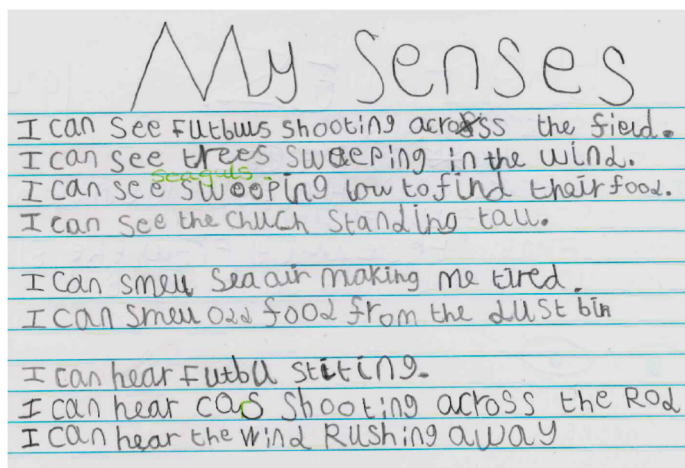 My Senses
I can see Futbuls shooting across the field.
I can see trees sweeping in the wind.
seaguls
I can see swooping low to find their food.
I can see the chuch standing tall.
I can smell sea air making me tired.
I can smell odd food from the dust bin
I can hear Futbll
I can hear cas shooting across the Rod
I can hear the wind Rushing away